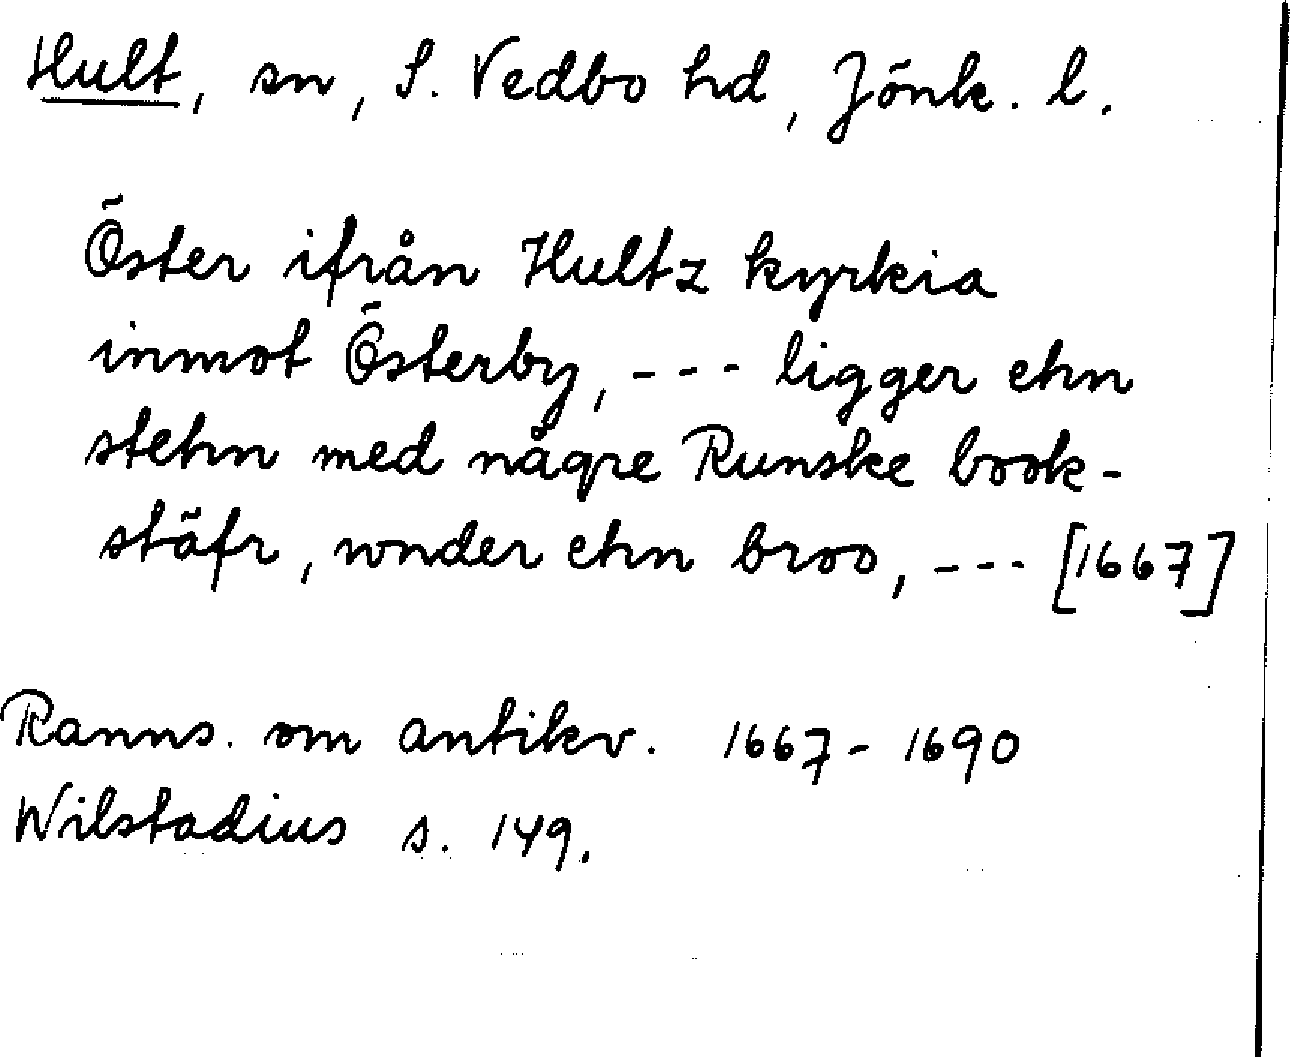 Hult, sn, S. Vedbo hd, Jönk. l.
Öster ifrån Hultz kyrkia
inmot Österby, --- ligger ehn
stehn med någre Runske book-
stäfr, wnder ehn broo, --- [1667]
Ranns. om antikv. 1667-1690
Wilstadius s. 149.